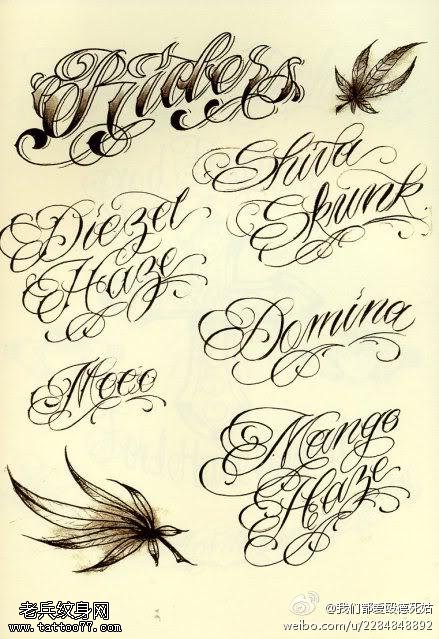 Riders
Shiva
Skunk
Diezel
Haze
Domina
Moco
Mango
Haze
老兵纹身网
www.tattoo77.com
@我们都爱毁德死姑
weibo.com/u/2284848892